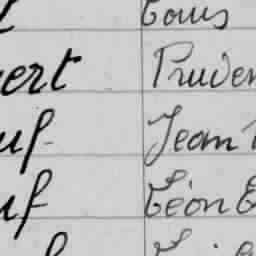 Louis
ert Pruden
uf Jean
uf Léon E